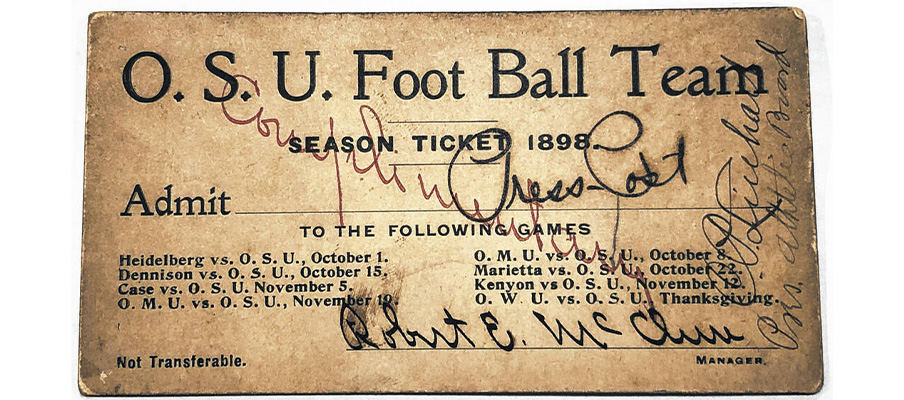 O. S. U. Foot Ball Team
SEASON TICKET 1898.
Complimentary
Press-Post
Admit
TO THE FOLLOWING GAMES
Heidelberg vs. O. S. U., October 1.
Dennison vs. O. S. U., October 15.
Case vs. O. S. U. November 5.
O. M. U. vs. O. S. U., November 19.
O. M. U. vs. O. S. U., October 8.
Marietta vs. O. S. U., October 22.
Kenyon vs O. S. U., November 12.
O. W. U. vs. O. S. U., Thanksgiving.
Robert E. Mc
Not Transferable.
MANAGER.
Pres. Athletic Board